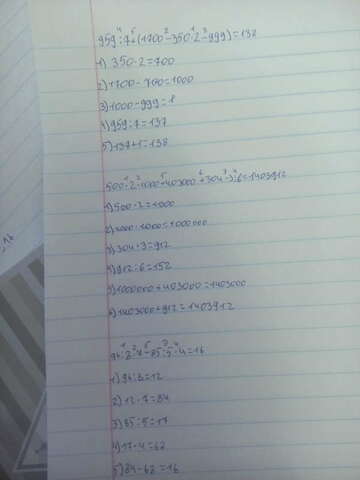 959:7+(1700-350·2-999)=138
1) 350·2=700
2) 1700-700=1000
3) 1000-999=1
4) 959:7=137
5) 137+1=138
500·2·1000+403000+304·3:6=1403912
1) 500·2=1000
2) 1000·1000=1000000
3) 304·3=912
4) 912:6=152
5) 1000000+403000=1403000
6) 1403000+912=1403912
96:8·7-85:5·4=16
1) 96:8=12
2) 12·7=84
3) 85:5=17
4) 17·4=68
5) 84-68=16